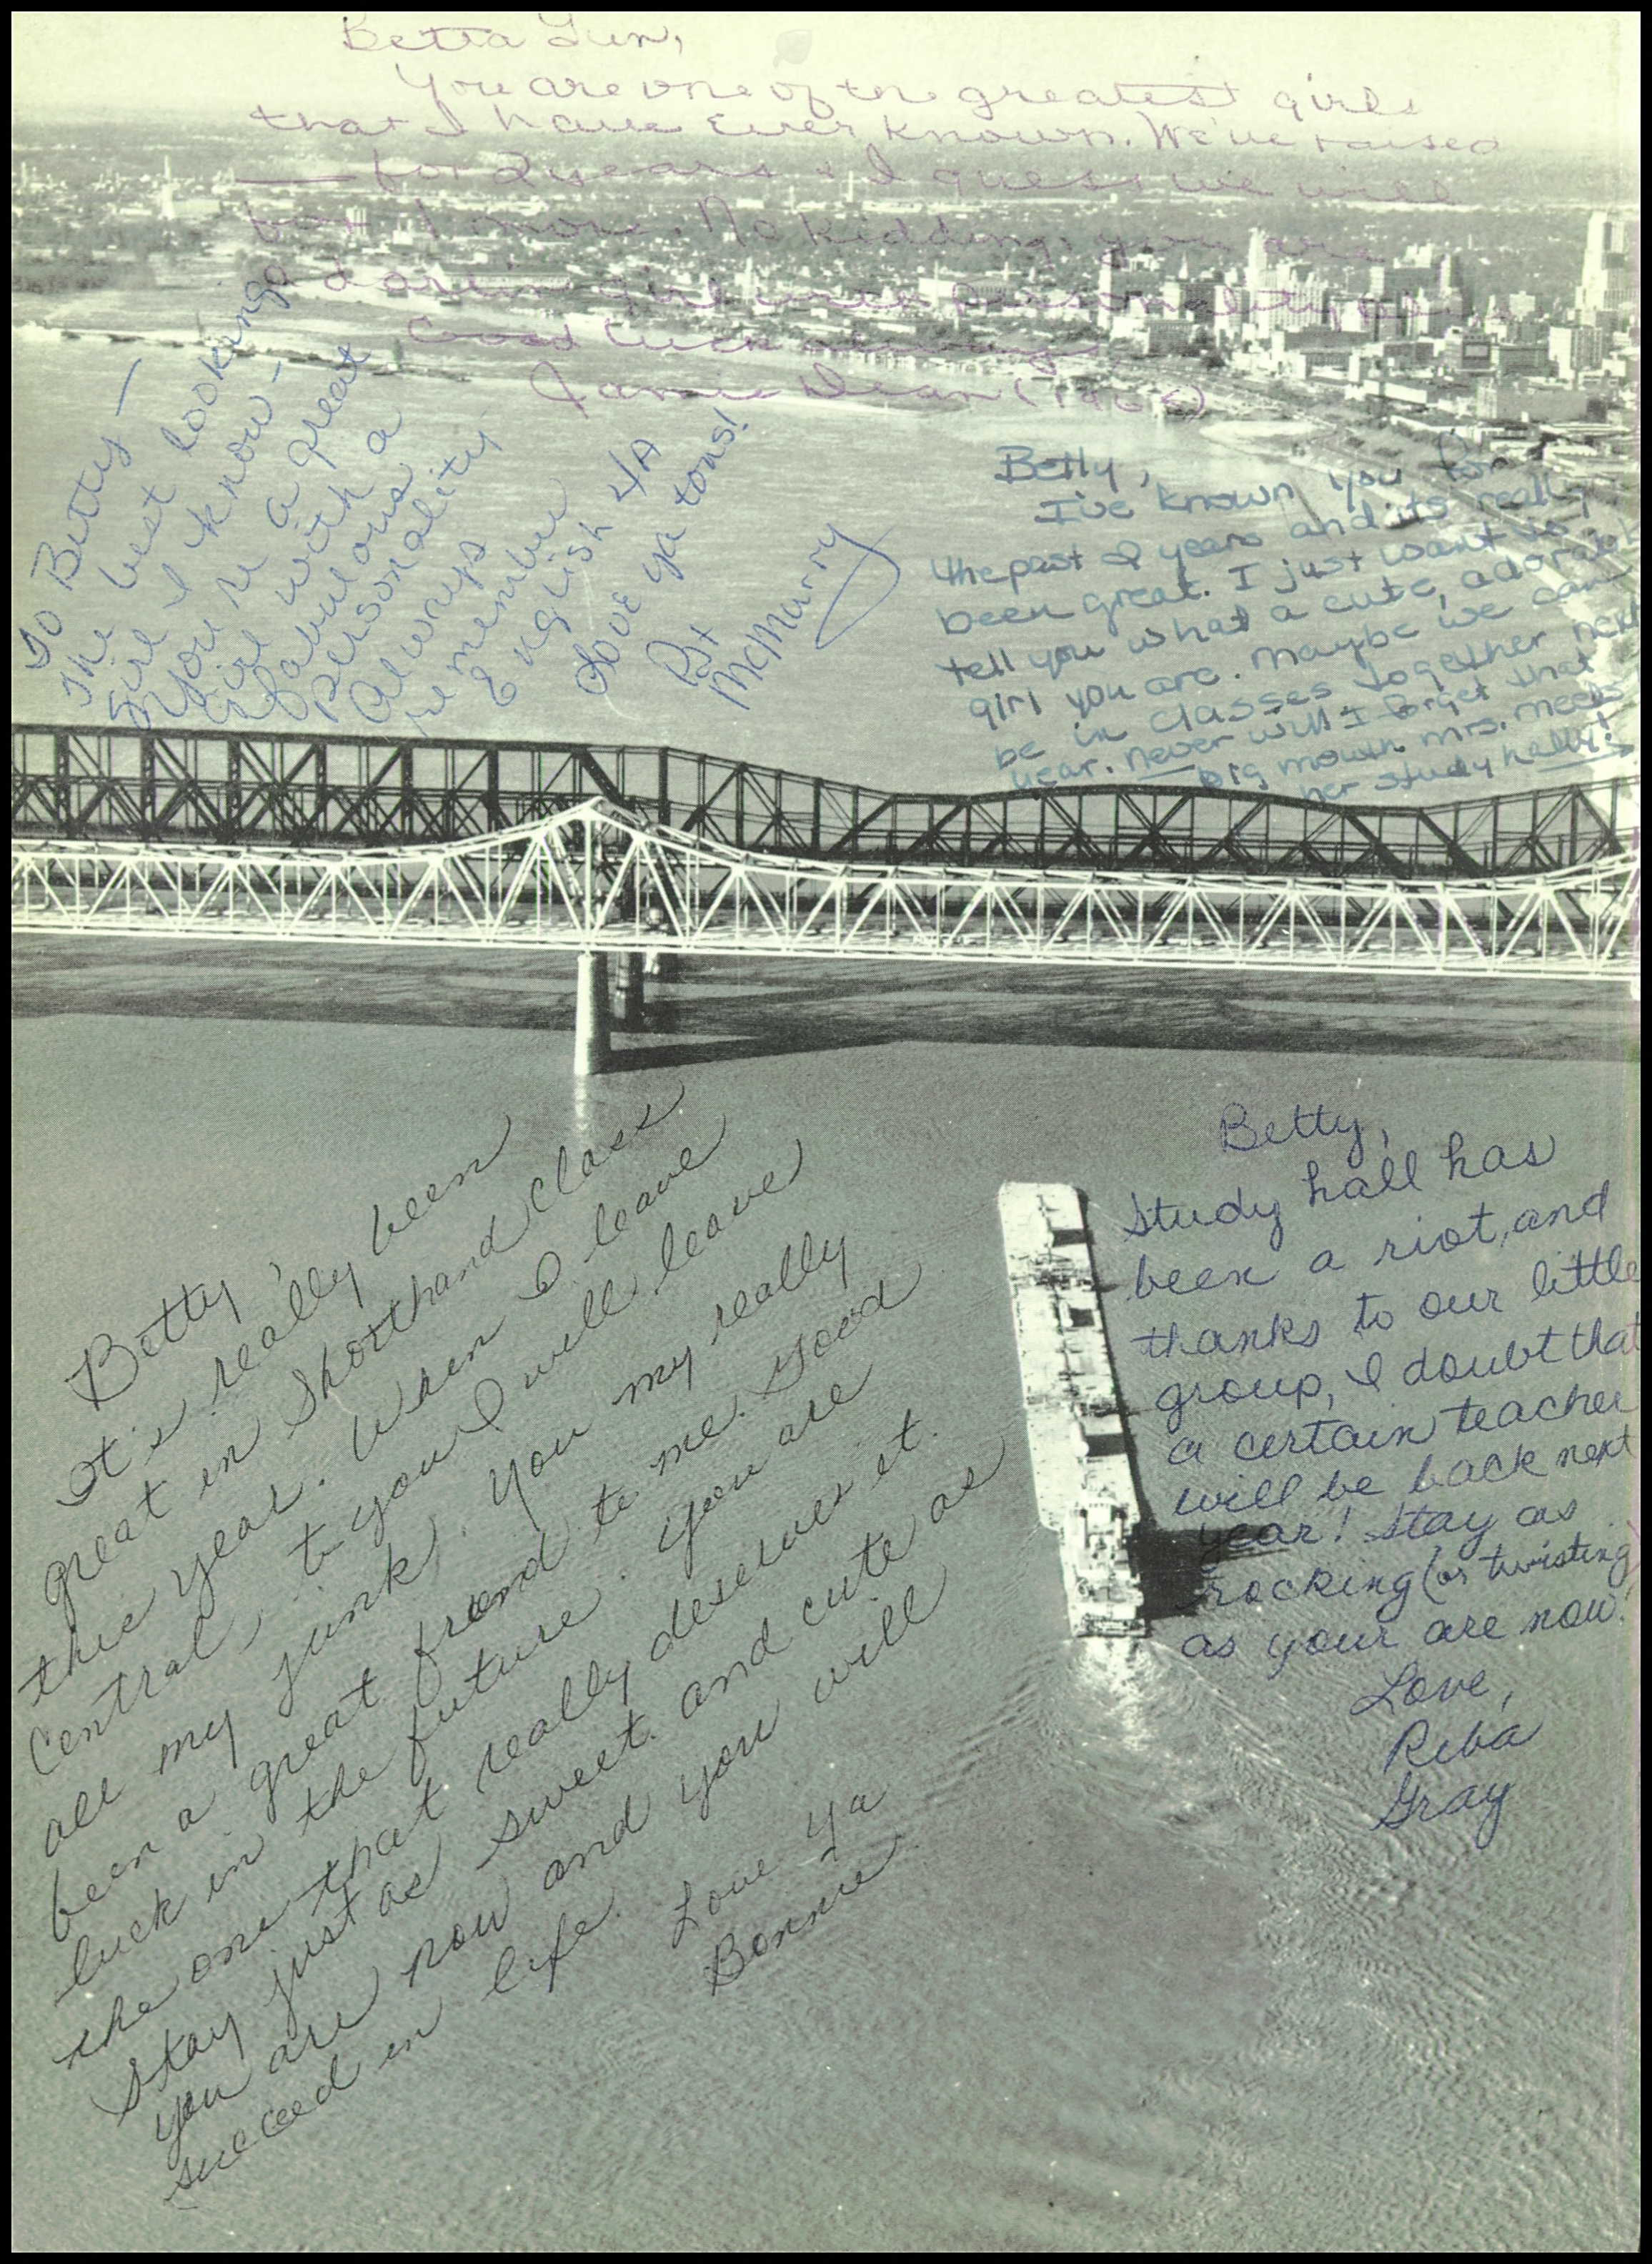 Betta Gun,
You are one of the greatest girls
that I have ever known. We've raised
—— for 2 years & I guess we will
for 1 more. No kidding, you are
a darlin girl with personality
Good luck always
Jamie Dean (1966)
To Betty —
The best looking
girl I know —
You're a great
girl with a
fabulous
personality
Always
remember
English 4A
Love ya tons!
Pat
McMurry
Betty,
I've known you for
the past 2 years and its really
been great. I just want to
tell you what a cute, adorable
girl you are. Maybe we can
be in classes together next
year. Never will I forget that
big mouth Mrs. Meeks
her study hall!!
Betty,
It's really been
great in Shorthand class
this year. When I leave
Central, to you I will leave
all my junk. You my really
been a great friend to me. Good
luck in the future. You are
the one that really deserves it.
Stay just as sweet and cute as
you are now and you will
succeed in life.
Love ya
Bonnie
Betty,
Study hall has
been a riot, and
thanks to our little
group, I doubt that
a certain teacher
will be back next
year! Stay as
rocking (or twisting)
as your are now.
Love,
Reba
Gray